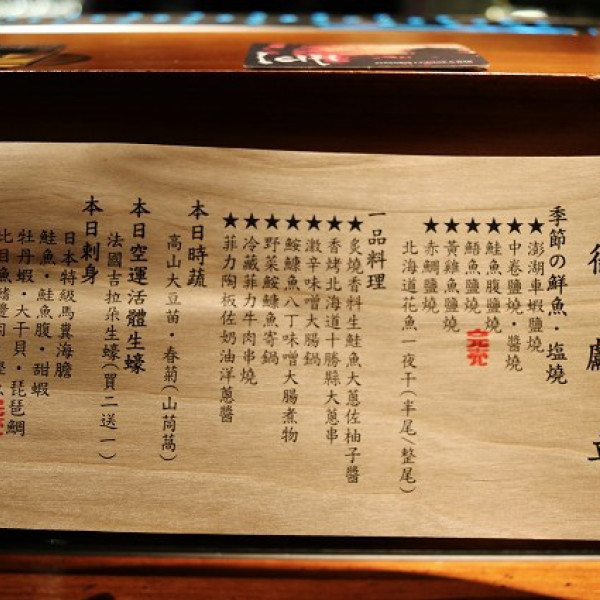 季節の鮮魚・塩燒
★澎湖車蝦鹽燒
★中卷鹽燒・醬燒
★鮭魚腹鹽燒
★鯃魚鹽燒
★黃雞魚鹽燒
★赤鯛鹽燒
北海道花魚一夜干(半尾/整尾)
一品料理
★炙燒香料生鮭魚大蔥佐柚子醬
★香烤北海道十勝縣大蔥串
★激辛味噌大腸鍋
★鮟鱇魚八丁味噌大腸煮物
★野菜鮟鱇魚寄鍋
★冷藏菲力牛肉串燒
★菲力陶板佐奶油洋蔥醬
本日時蔬
高山大豆苗・春菊(山茼萵)
本日空運活體生蠔
法國吉拉朵生蠔(買二送一)
本日刺身
日本特級馬糞海膽
鮭魚・鮭魚腹・甜蝦
牡丹蝦・大干貝・琵琶鯛
比目魚鰭邊肉